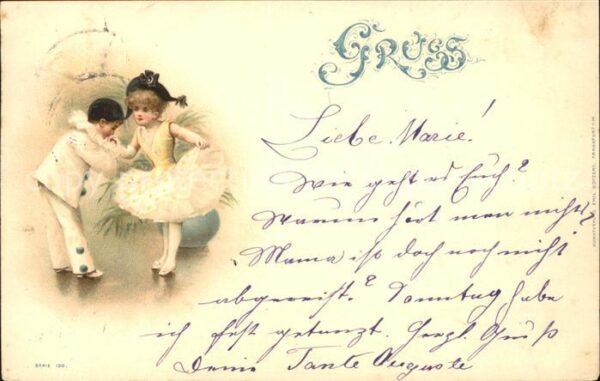 GRUSS
Liebe Marie!
Wie geht es Euch?
Warum hört man nichts?
Mama ist doch noch nicht
abgereist? Sonntag habe
ich fest getanzt. Herzl. Gruß
Deine Tante Auguste
SERIE 120.